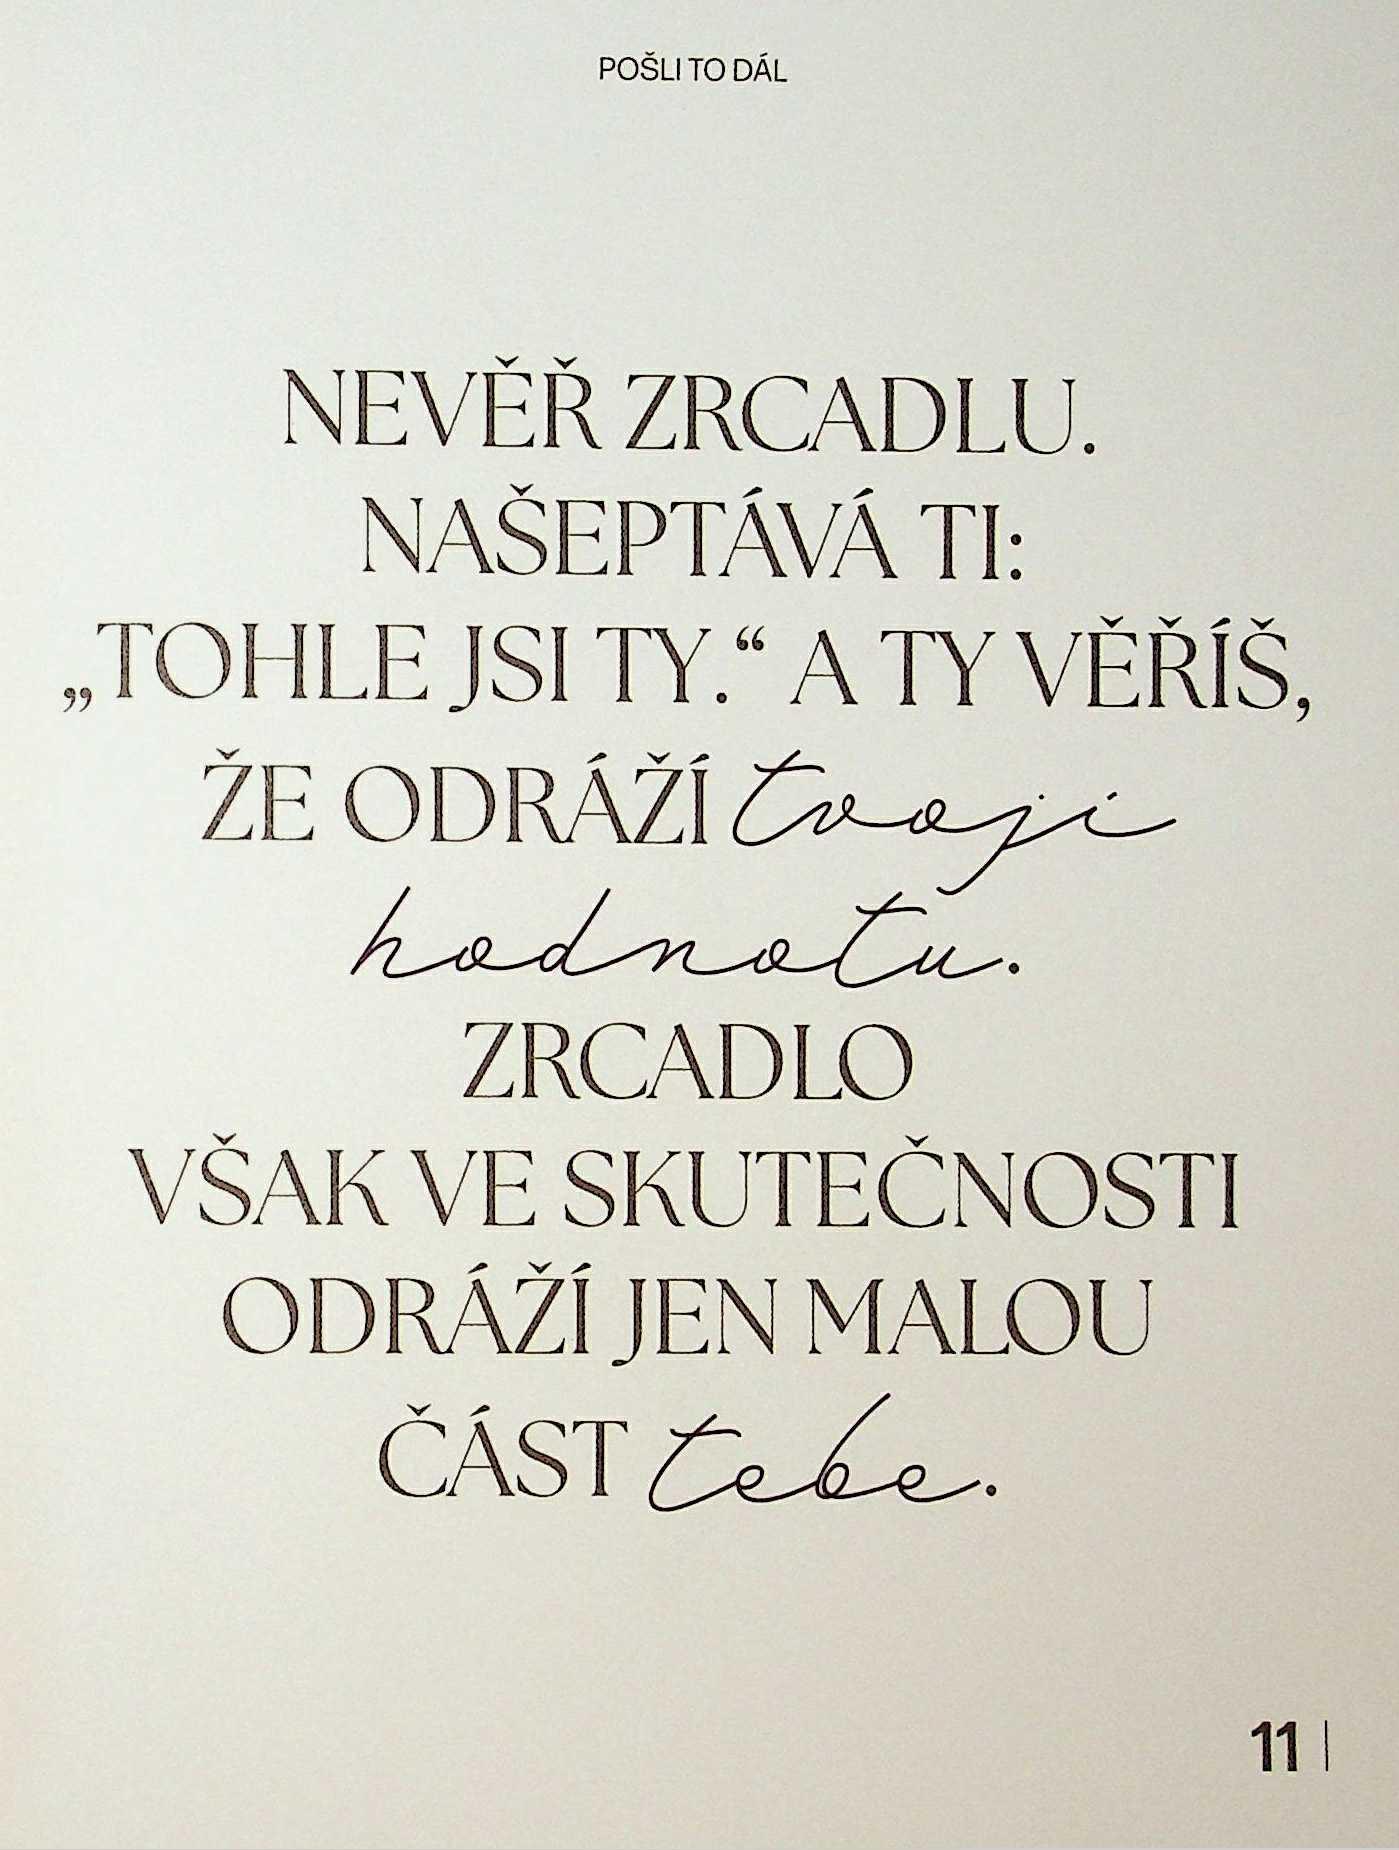 POŠLI TO DÁL
NEVĚŘ ZRCADLU.
NAŠEPTÁVÁ TI:
„TOHLE JSI TY.“ A TY VĚŘÍŠ,
ŽE ODRÁŽÍ tvoji
hodnotu.
ZRCADLO
VŠAK VE SKUTEČNOSTI
ODRÁŽÍ JEN MALOU
ČÁST tebe.
11